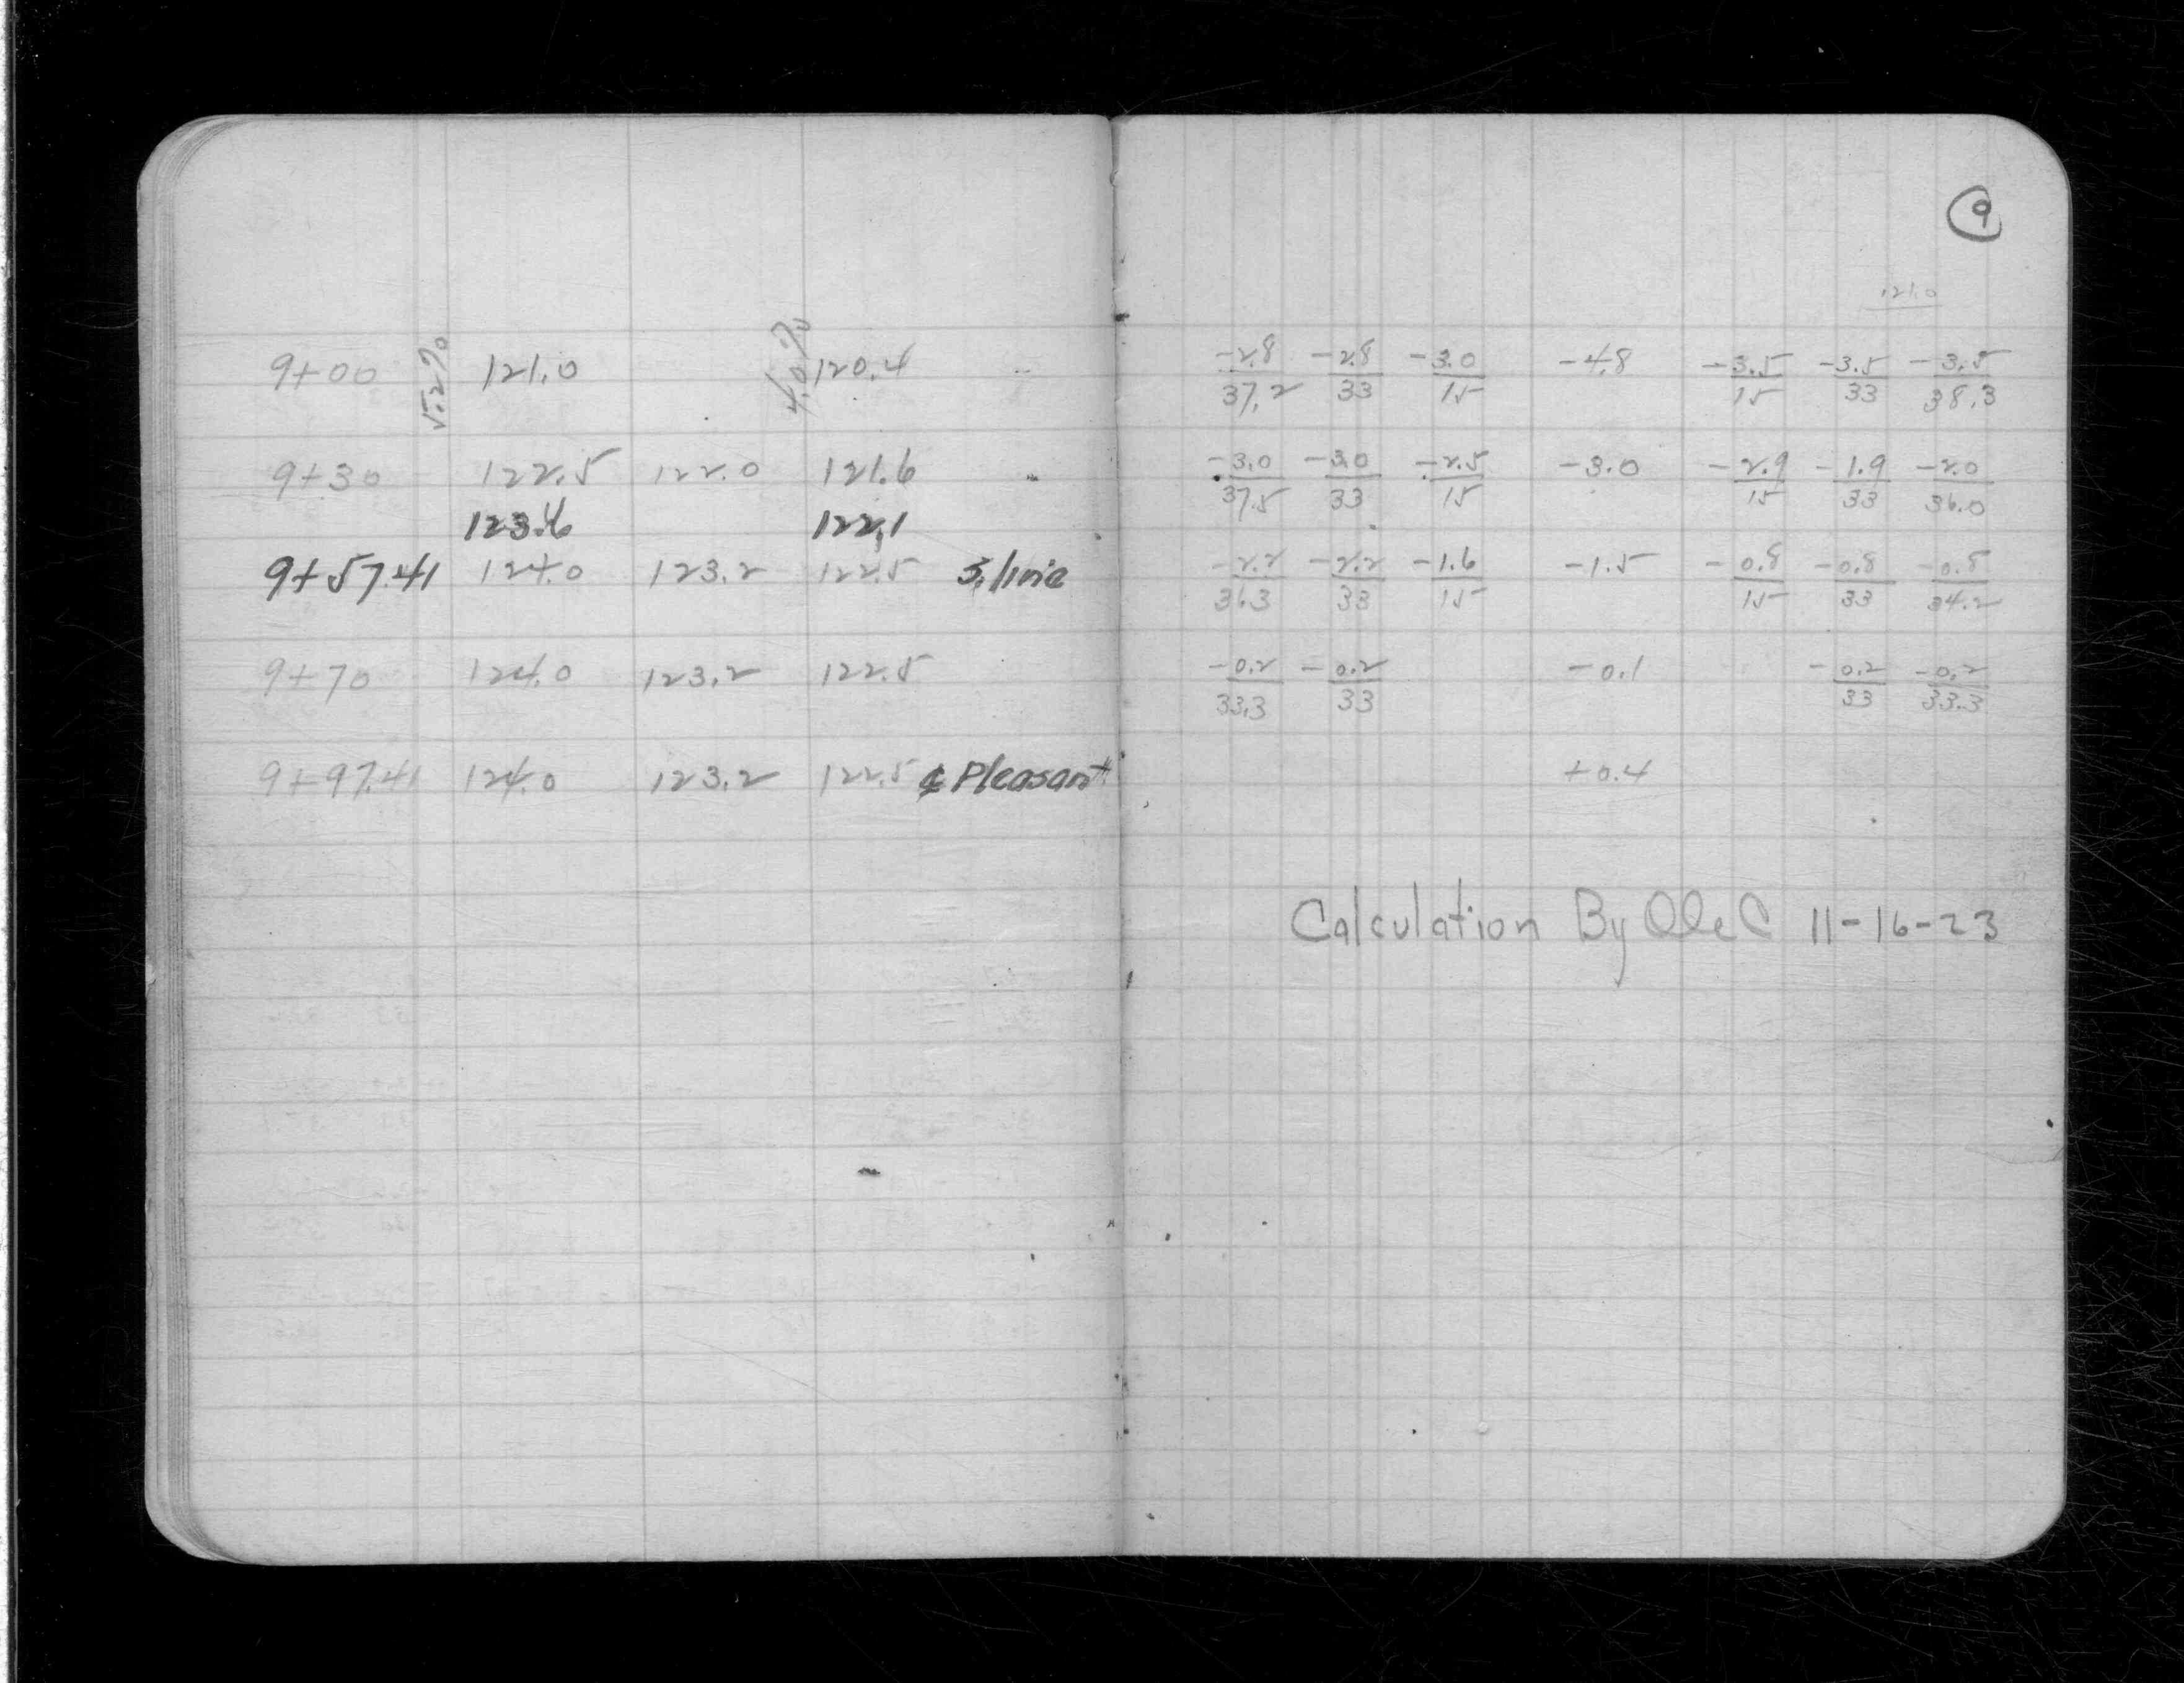 9
121.0
9+00 5.2% 121.0 4.0% 120.4 " -2.8/37.2 -2.8/33 -3.0/15 -4.8 -3.5/15 -3.5/33 -3.5/38.3
9+30 122.5 122.0 121.6 " -3.0/37.5 -3.0/33 -2.5/15 -3.0 -2.9/15 -1.9/33 -2.0/36.0
123.6 122.1
9+57.41 124.0 123.2 122.5 S. line -2.2/36.3 -2.2/33 -1.6/15 -1.5 -0.8/15 -0.8/33 -0.8/34.2
9+70 124.0 123.2 122.5 -0.2/33.3 -0.2/33 -0.1 -0.2/33 -0.2/33.3
9+97.41 124.0 123.2 122.5 ℄ Pleasant +0.4
Calculation By 11-16-23